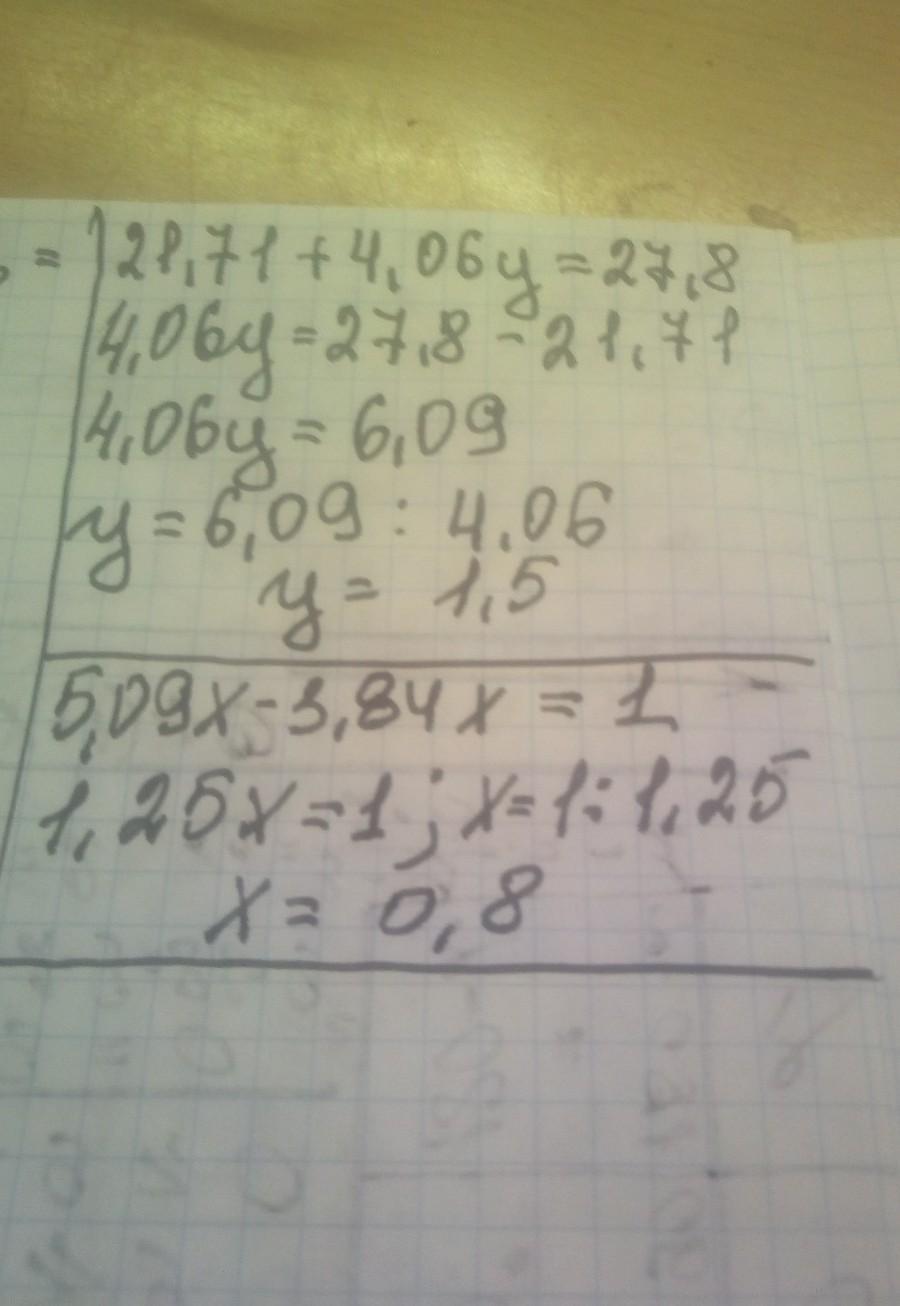 = 21,71 + 4,06y = 27,8
4,06y = 27,8 - 21,71
4,06y = 6,09
y = 6,09 : 4,06
y = 1,5
5,09x - 3,84x = 1
1,25x = 1 ; x = 1 : 1,25
x = 0,8